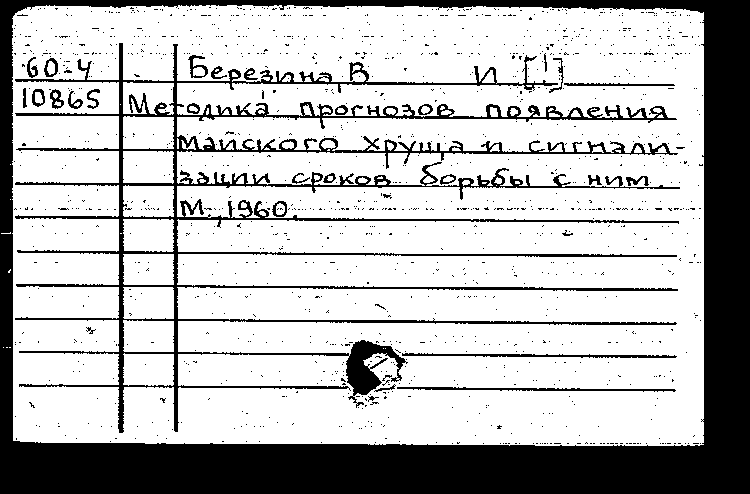 60-4 Березина, В И [1]
10865 Методика прогнозов появления
майского хруща и сигнали-
зации сроков борьбы с ним.
М., 1960.